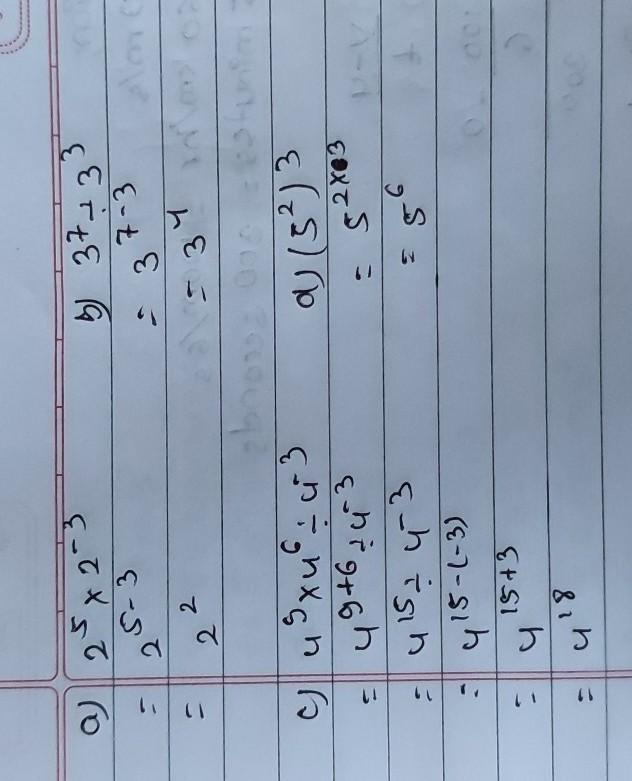 a) 2⁵ × 2⁻³
= 2⁵⁻³
= 2²
b) 3⁷ ÷ 3³
= 3⁷⁻³
= 3⁴
c) 4⁹ × 4⁶ ÷ 4⁻³
= 4⁹⁺⁶ ÷ 4⁻³
= 4¹⁵ ÷ 4⁻³
= 4¹⁵⁻⁽⁻³⁾
= 4¹⁵⁺³
= 4¹⁸
d) (5²)³
= 5²ˣ³
= 5⁶